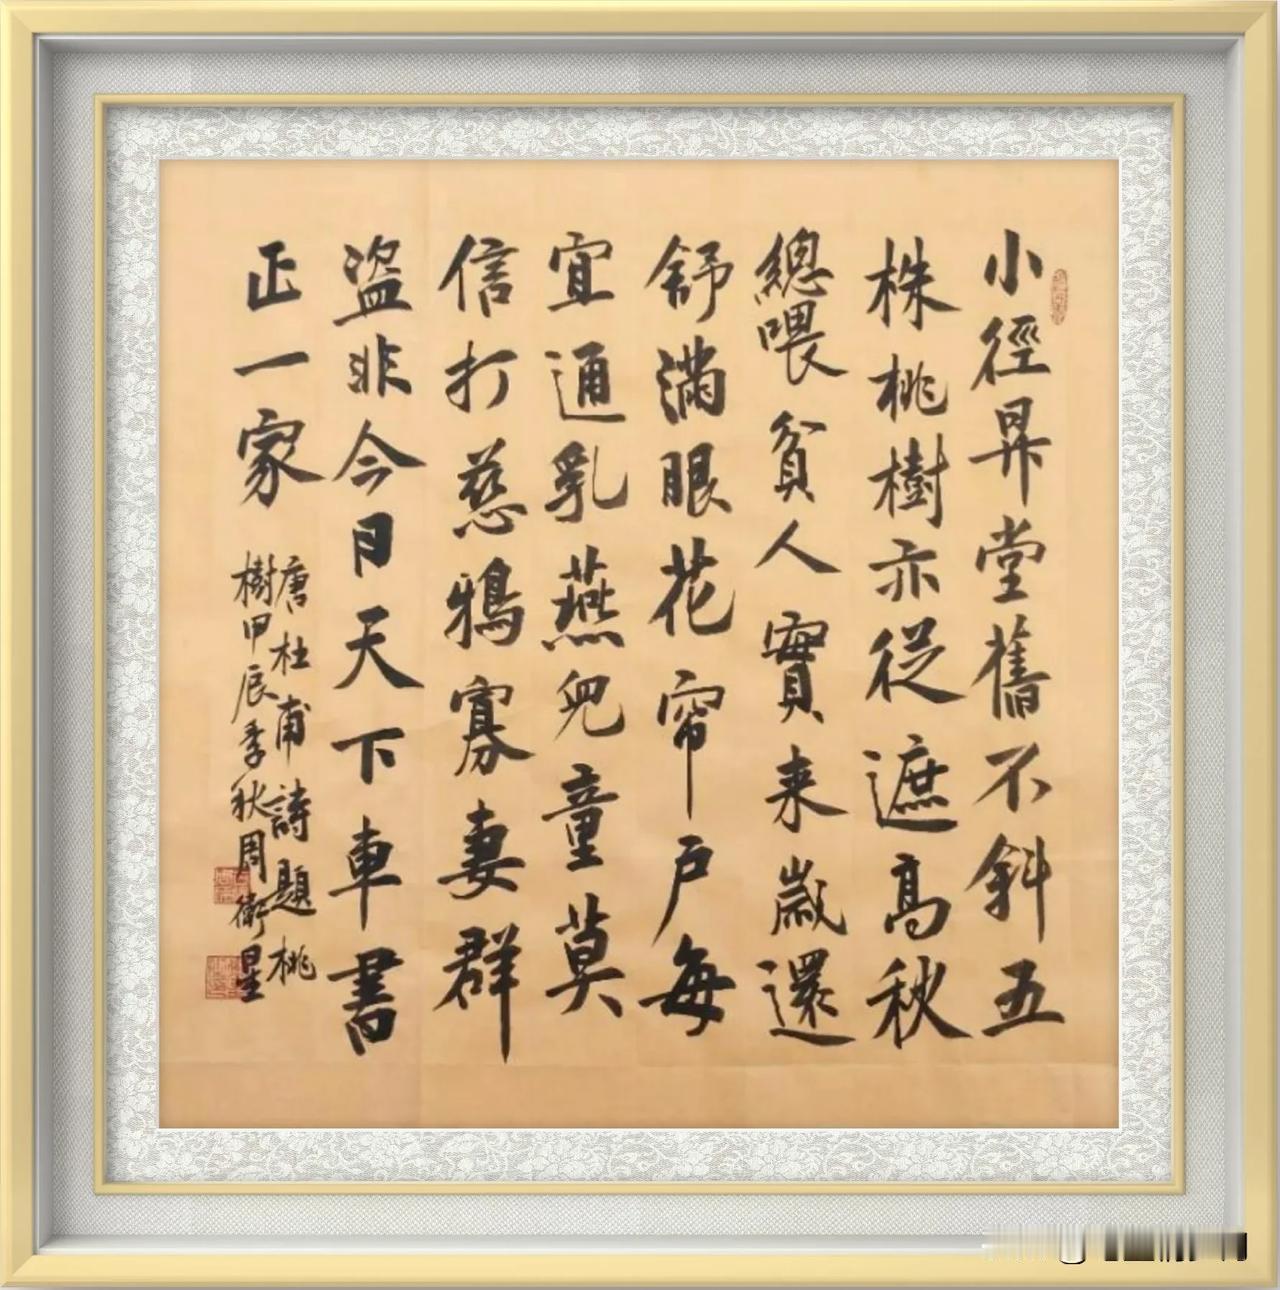 小徑昇堂舊不斜五
株桃樹亦從遮高秋
總喂貧人實来歲還
舒滿眼花帘户每
宜通乳燕兒童莫
信打慈鴉寡妻群
盜非今日天下車書
正一家
唐杜甫詩題桃
樹甲辰季秋周衛星